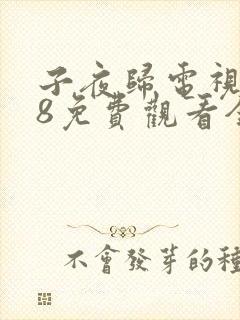 子夜歸電視
8免費觀看全
不會發芽的種